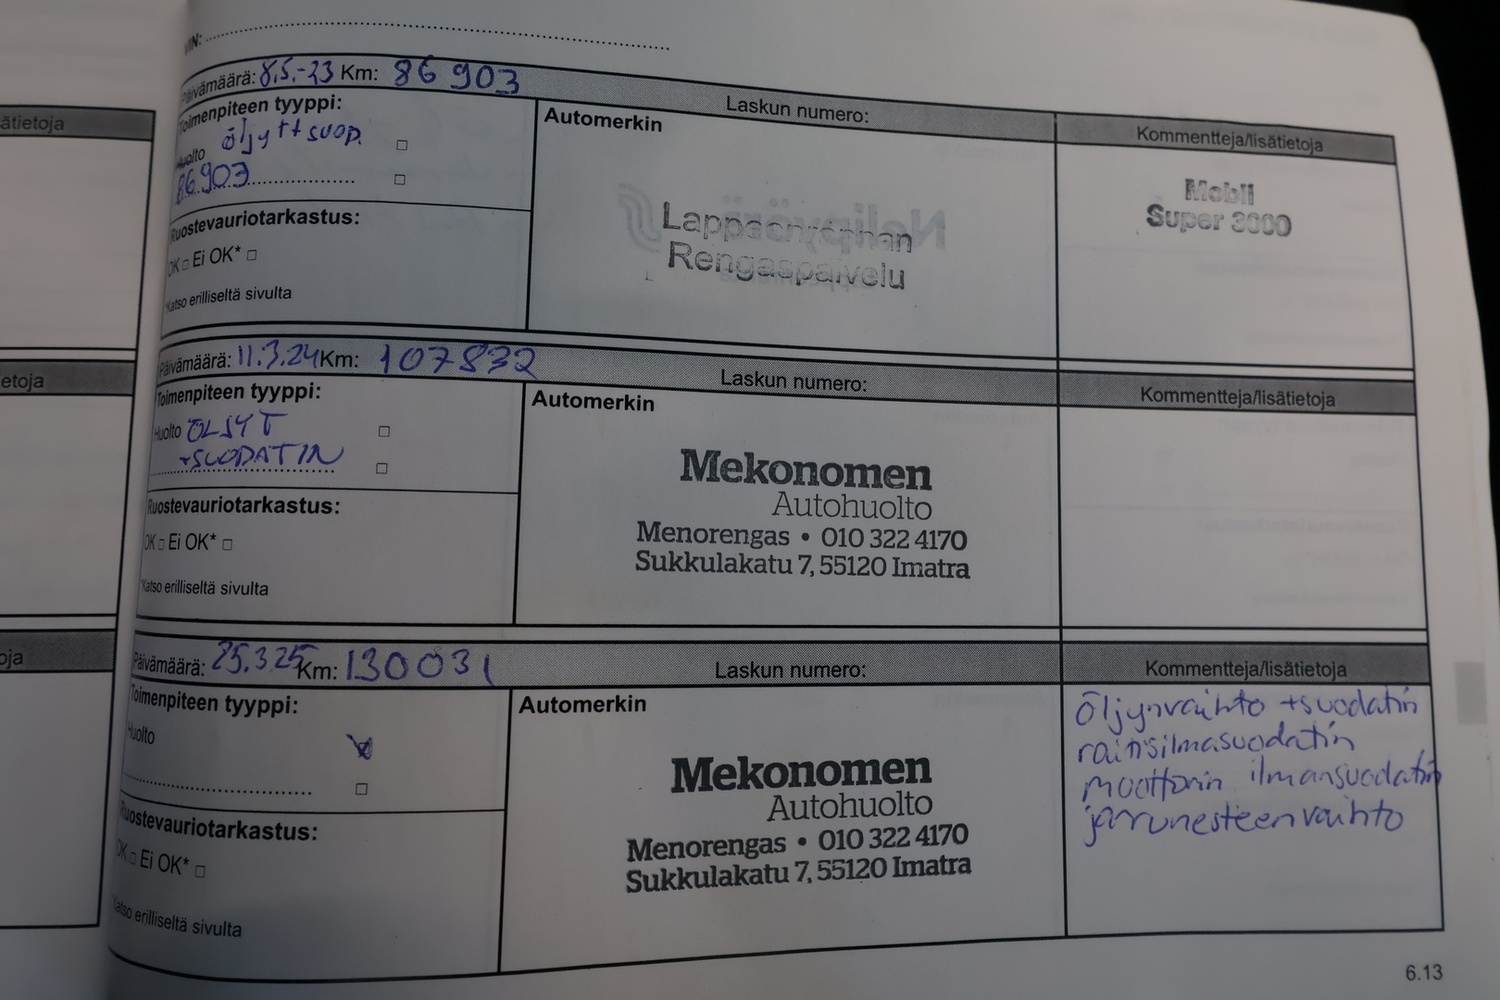 VIN:
Päivämäärä: 8.5.-23 Km: 86 903
Laskun numero:
Kommentteja/lisätietoja
Toimenpiteen tyyppi:
Huolto öljyt+suop. □
86903 □
Automerkin
Lappeenrannan
Rengaspalvelu
Mobil
Super 3000
Ruostevauriotarkastus:
OK □ Ei OK* □
*Katso erilliseltä sivulta
Päivämäärä: 11.3.24 Km: 107832
Laskun numero:
Kommentteja/lisätietoja
Toimenpiteen tyyppi:
Huolto ÖLJYT □
+SUODATIN □
Automerkin
Mekonomen
Autohuolto
Menorengas • 010 322 4170
Sukkulakatu 7, 55120 Imatra
Ruostevauriotarkastus:
OK □ Ei OK* □
*Katso erilliseltä sivulta
Päivämäärä: 25.3.25 Km: 130031
Laskun numero:
Kommentteja/lisätietoja
Toimenpiteen tyyppi:
Huolto
Automerkin
Mekonomen
Autohuolto
Menorengas • 010 322 4170
Sukkulakatu 7, 55120 Imatra
öljynvaihto +suodatin
raitisilmasuodatin
moottorin ilmansuodatin
jarrunesteenvaihto
Ruostevauriotarkastus:
OK □ Ei OK* □
*Katso erilliseltä sivulta
6.13
ätietoja
etoja
oja